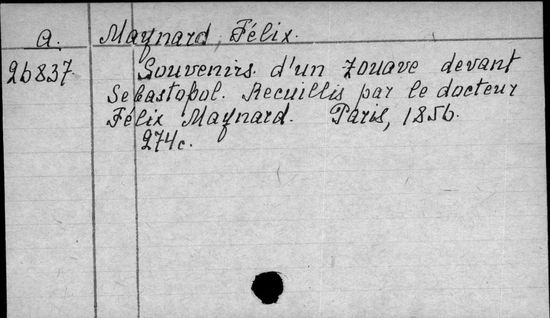 A. Maynard, Félix.
26837 Souvenirs d'un zouave devant
Sebastopol. Recuillis par le docteur
Félix Maynard. Paris, 1856.
274c.